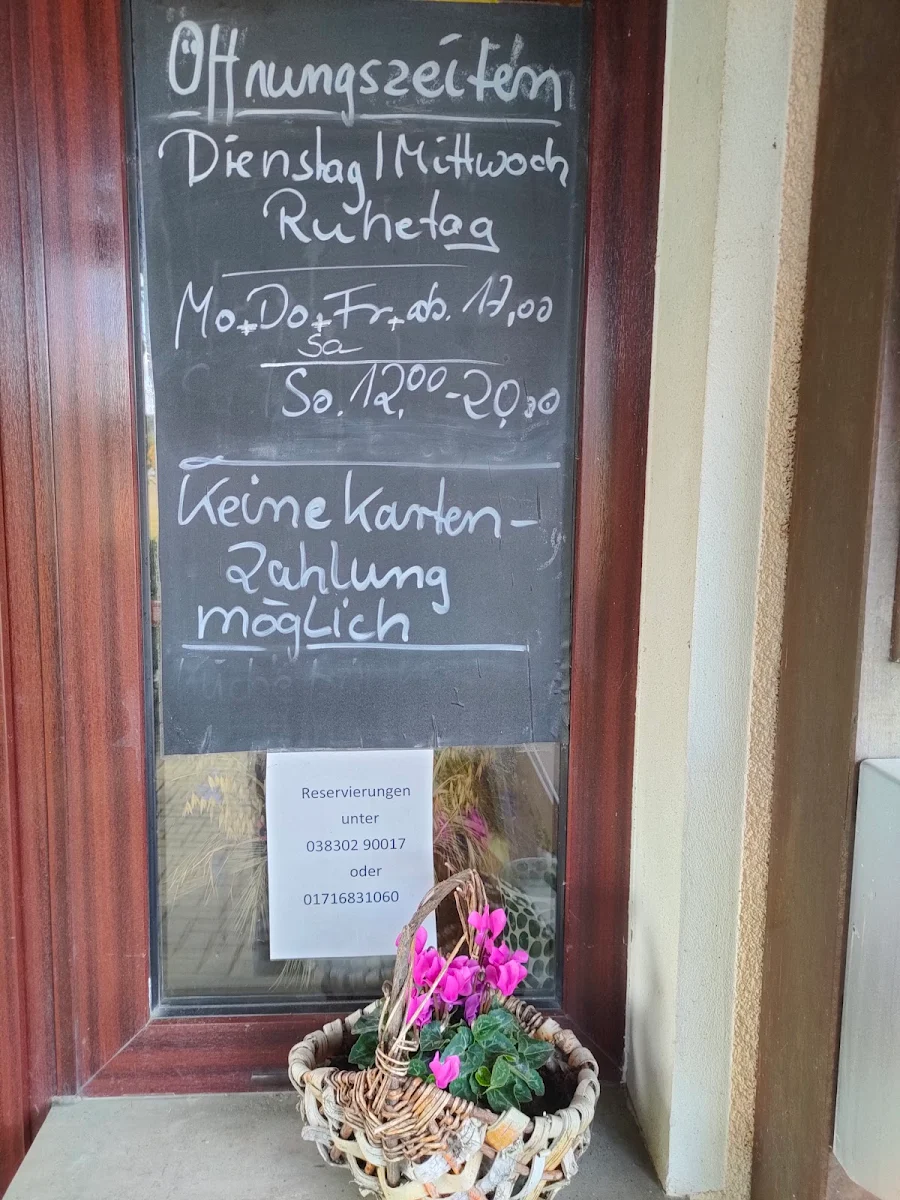 Öffnungszeiten
Dienstag | Mittwoch
Ruhetag
Mo + Do + Fr + ab. 17,00
Sa
So. 12,00 - 20,00
Keine Karten-
Zahlung
möglich
Reservierungen
unter
038302 90017
oder
01716831060